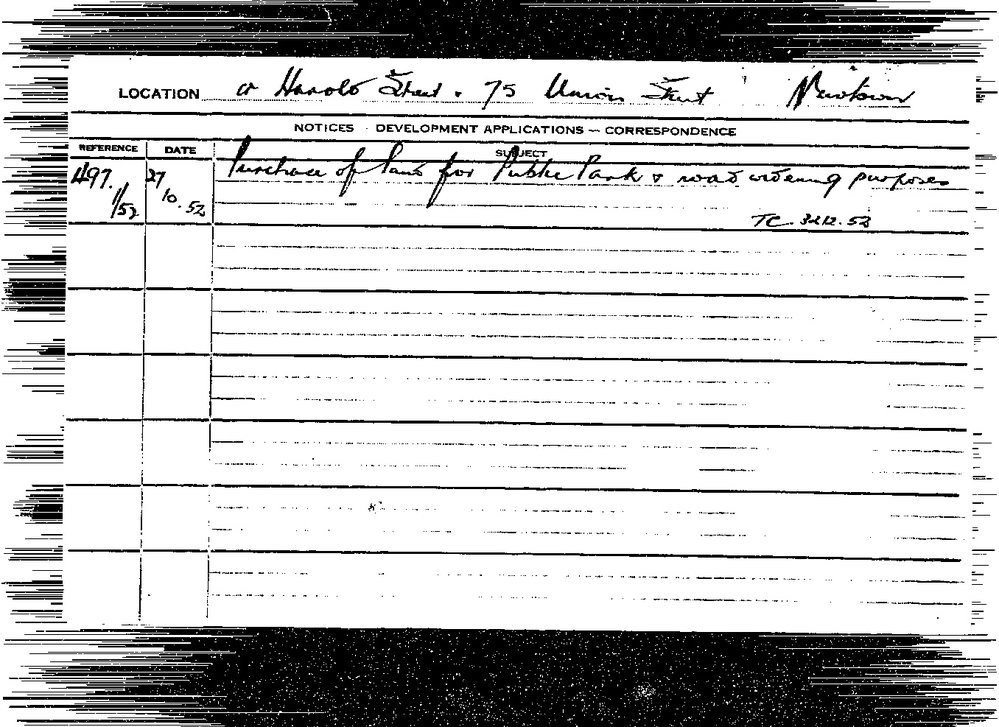 LOCATION Cr Harold Street . 75 Union Street Newtown
NOTICES - DEVELOPMENT APPLICATIONS — CORRESPONDENCE
REFERENCE DATE SUBJECT
497. 27 Purchase of land for Public Park & road widening purposes
1/52 10.52
TC. 3212.52